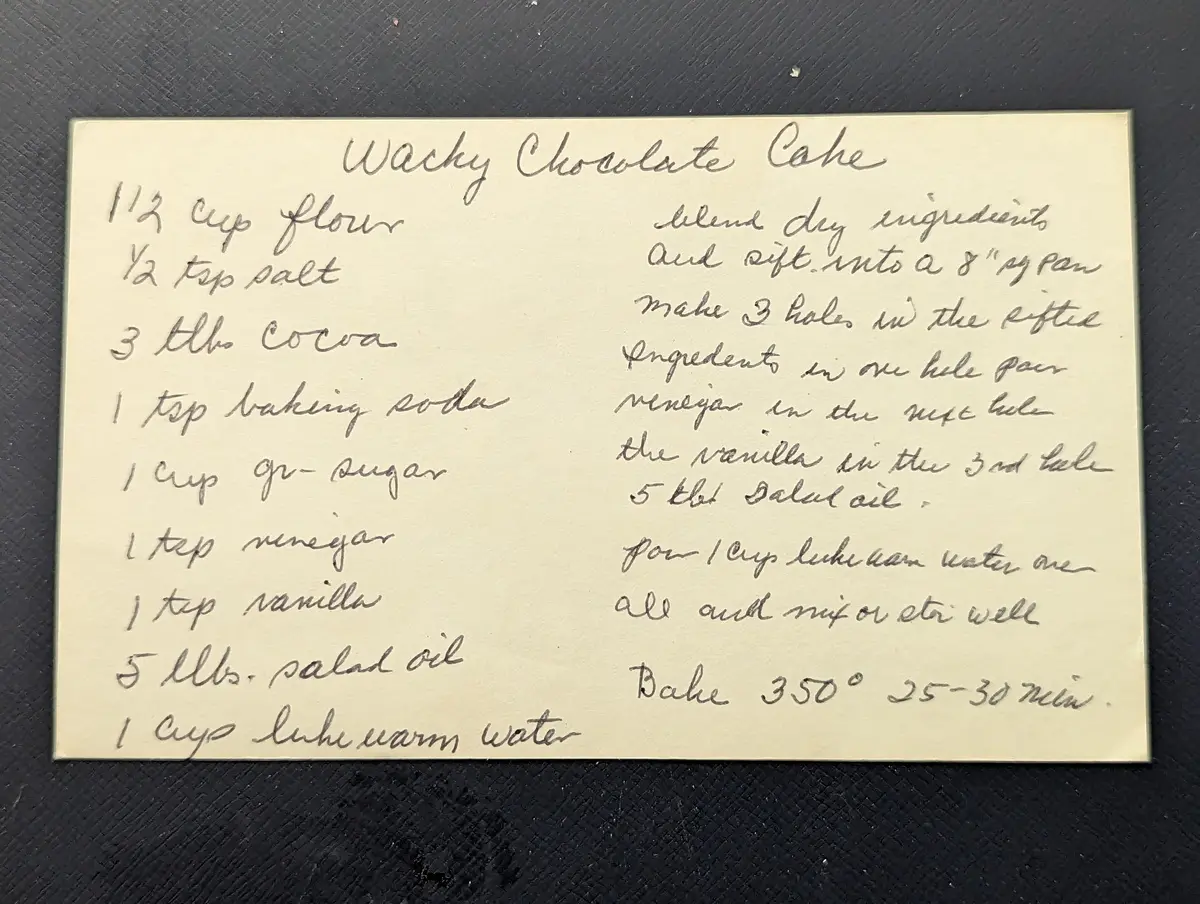 Wacky Chocolate Cake
1 1/2 cup flour
1/2 tsp salt
3 tlbs cocoa
1 tsp baking soda
1 cup gr- sugar
1 tsp vinegar
1 tsp vanilla
5 tlbs. salad oil
1 cup lukewarm water
blend dry ingredients
and sift into a 8" sq pan
make 3 holes in the sifted
ingredents in one hole pour
vinegar in the next hole
the vanilla in the 3rd hole
5 tbl salad oil.
pour 1 cup lukewarm water over
all and mix or stir well
Bake 350° 25-30 min.